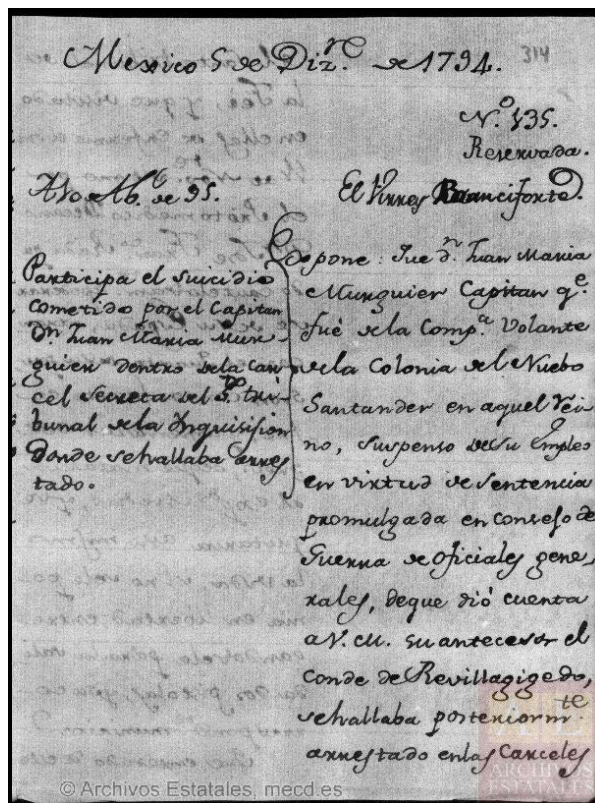 Mexico 5 de Diz.re de 1794.
314
N.o 135.
Reservada.
El Virrey Branciforte.
A 10 Ab.l de 95.
Participa el suicidio
cometido por el Capitan
Dn. Juan Maria Mur-
guier dentro de la Car-
cel Secreta del S.to tri-
bunal de la Inquisision
donde se hallaba arres
tado.
Expone: que d.n Juan Maria
Murguier Capitan q.e
fué de la Comp.a Volante
de la Colonia del Nuebo
Santander en aquel Rei-
no, suspenso de su Empleo
en virtud de Sentencia
promulgada en Consejo de
Guerra de oficiales gene-
rales, de que dió cuenta
a V.M. su antecesor el
Conde de Revillagigedo,
se hallaba posteriorm.te
arrestado en las Carceles
© Archivos Estatales, mecd.es
ARCHIVOS
ESTATALES